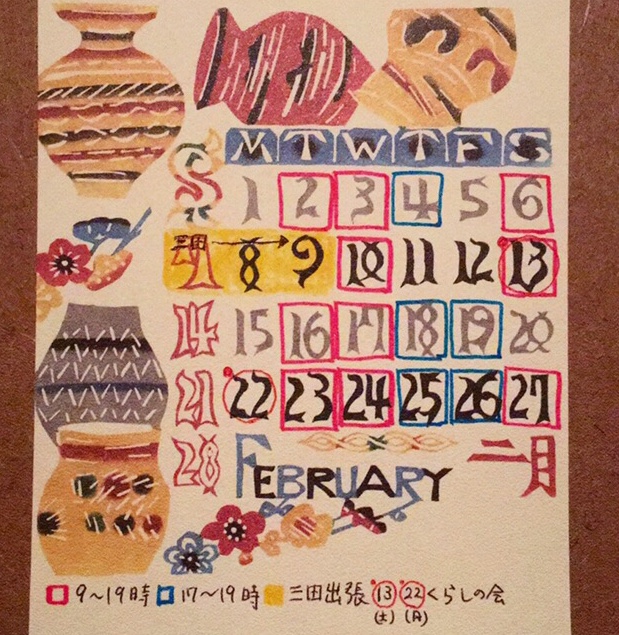 S M T W T F S
1 2 3 4 5 6
三田 7 8 9 10 11 12 13
14 15 16 17 18 19 20
21 22 23 24 25 26 27
28 FEBRUARY 二月
9〜19時 17〜19時 三田出張 13 22 くらしの会
(土) (月)